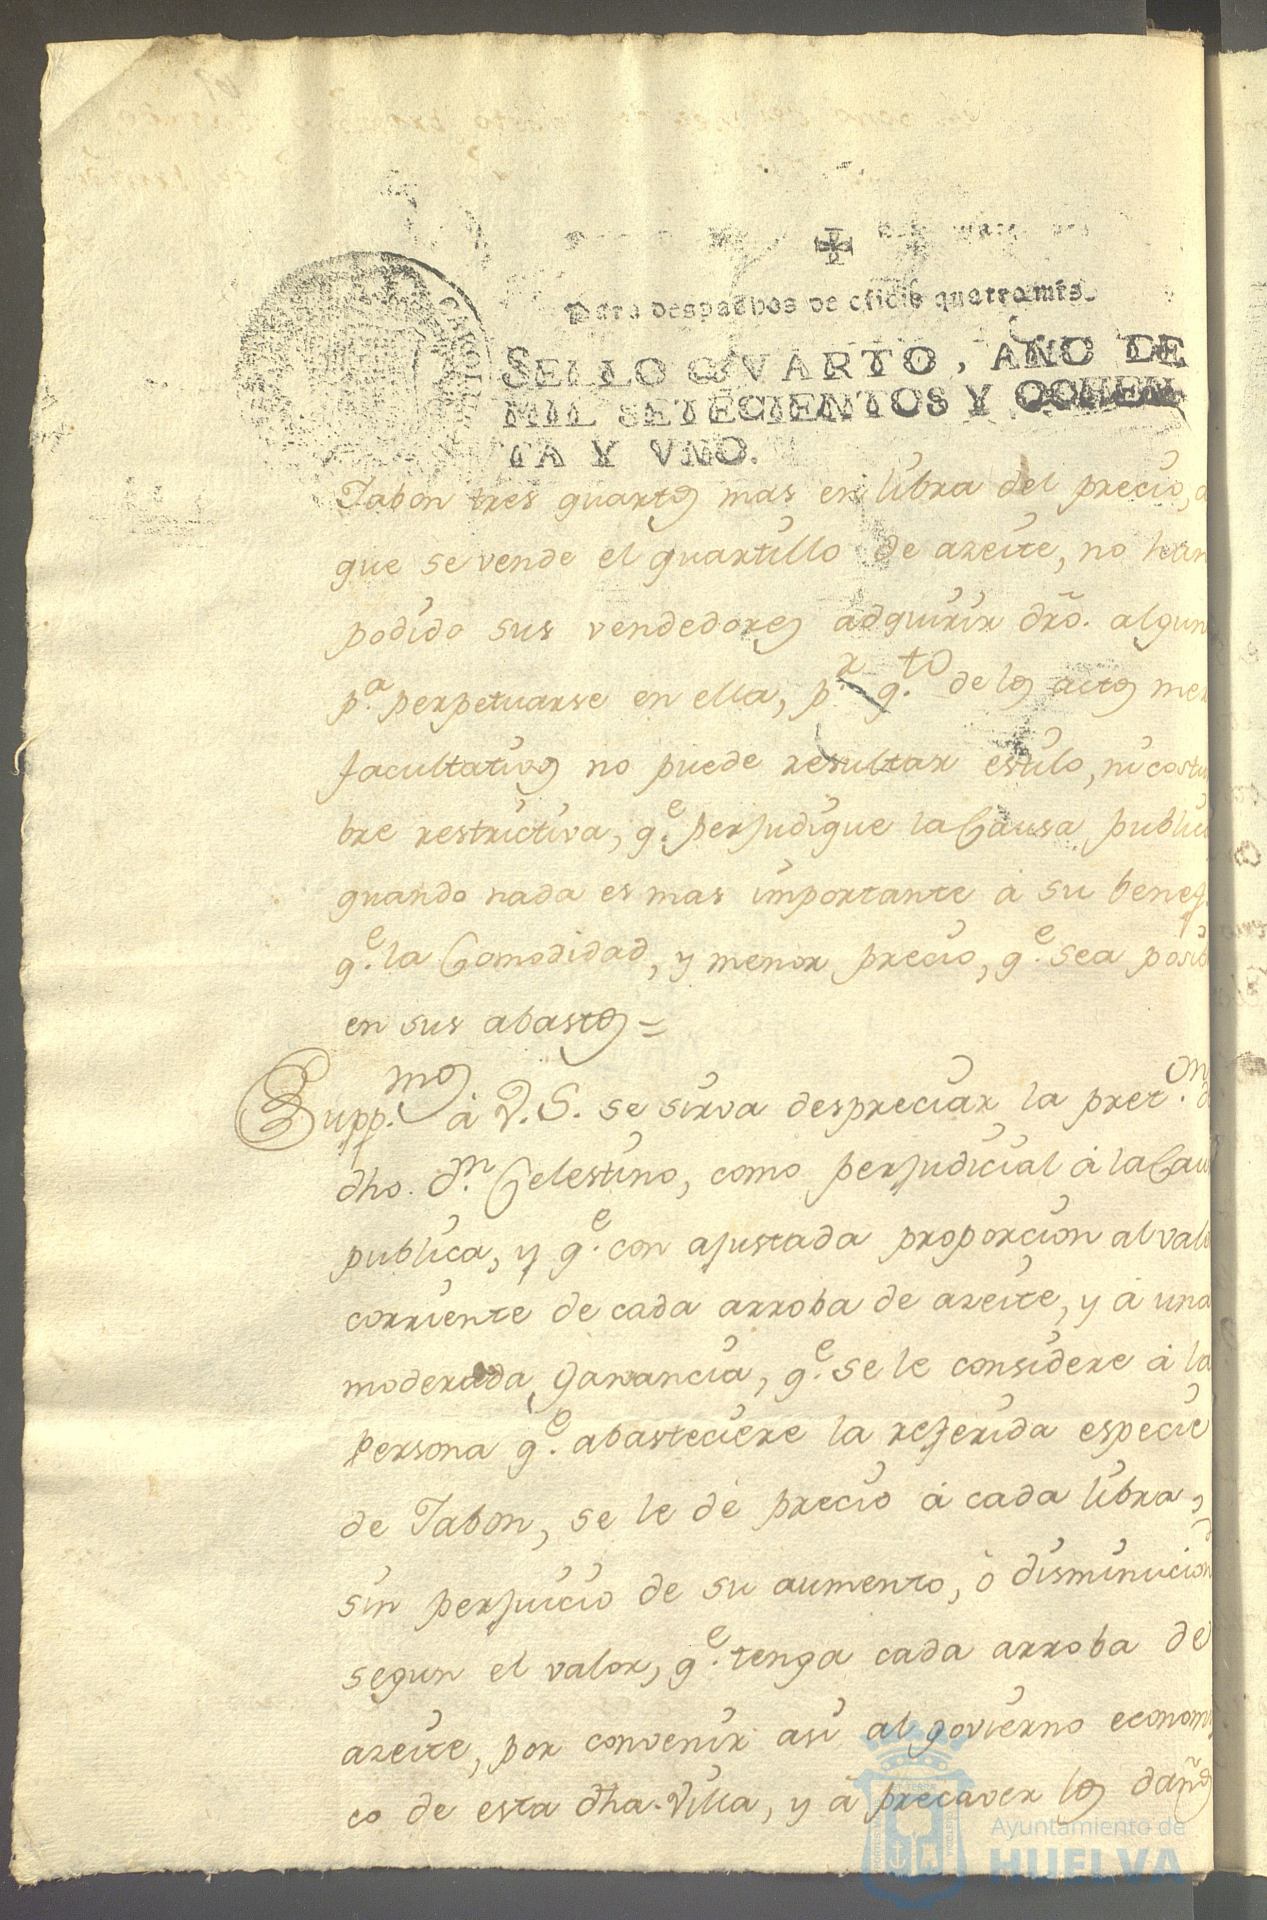 Para despachos de oficio quatro mrs.
SELLO QVARTO, AÑO DE
MIL SETECIENTOS Y OCHEN
TA Y VNO.
Jabon tres quartos mas en libra del precio, a
que se vende el quartillo de azeite, no han
podido sus vendedores adquirir dr̃o. algun
p.ª perpetuarse en ella, p.r q.to de los actos mer
facultativos no puede resultar estilo, ni costum
bre restrictiva, q.e perjudique la Causa public
quando nada es mas importante à su benef
q.e la Comodidad, y menor precio, q.e sea posib
en sus abastos =
Supp.mos à V.S. se sirva despreciar la pret.on d
dho. d.n Celestino, como perjudicial à la Cau
publica, y q.e con ajustada proporcion al valo
corriente de cada arroba de azeite, y à una
moderada ganancia, q.e se le considere à la
persona q.e abasteciere la referida especie
de Jabon, se le dè precio à cada libra,
sin perjuicio de su aumento, ò disminucion
segun el valor, q.e tenga cada arroba de
azeite, por convenir asi al govierno economi
co de esta dha. Villa, y à precaver los daños
Ayuntamiento de
HUELVA